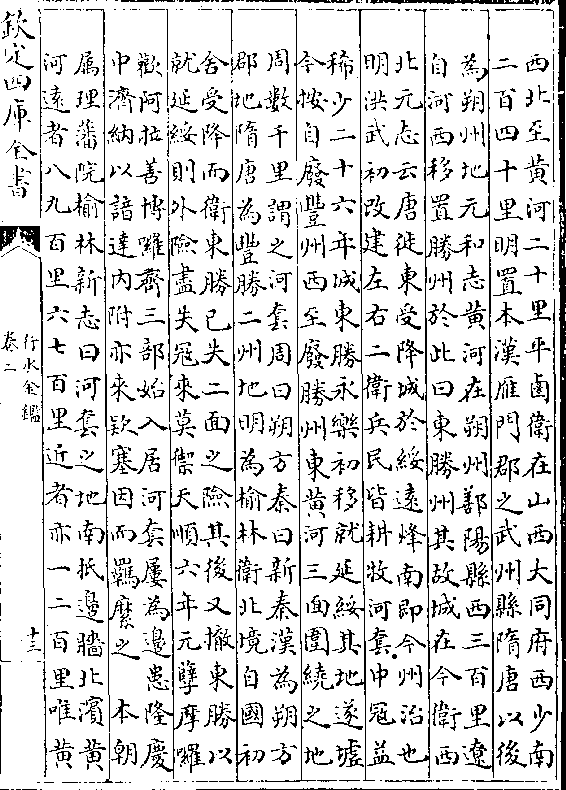 西北至黄河二十里平鹵衛在山西大同府西少南
二百四十里明置本漢雁門郡之武州縣隋唐以後
為朔州地元和志黄河在朔州鄯陽縣西三百里遼
自河西移置勝州於此曰東勝州其故城在今衛西
北元志云唐徙東受降城於綏遠烽南即今州治也
明洪武初改建左右二衛兵民皆耕牧河套中冦益
稀少二十六年城東勝永樂初移就延綏其地遂墟
今按自廢豐州西至廢勝州東黄河三面圍繞之地
周數千里謂之河套周曰朔方秦曰新秦漢為朔方
郡地隋唐為豐勝二州地明為榆林衛北境自國初
舍受降而衛東勝已失二面之險其後又撤東勝以
就延綏則外險盡失冦來莫禦天順六年元孽摩囉
歡阿拉善博囉齊三部始入居河套屢為邊患隆慶
中濟納以諳達内附亦來欵塞因而羈縻之　本朝
屬理藩院榆林新志曰河套之地南抵邊牆北濱黄
河遠者八九百里六七百里近者亦一二百里唯黄
欽定四庫全書
行水金鑑
卷二
十三